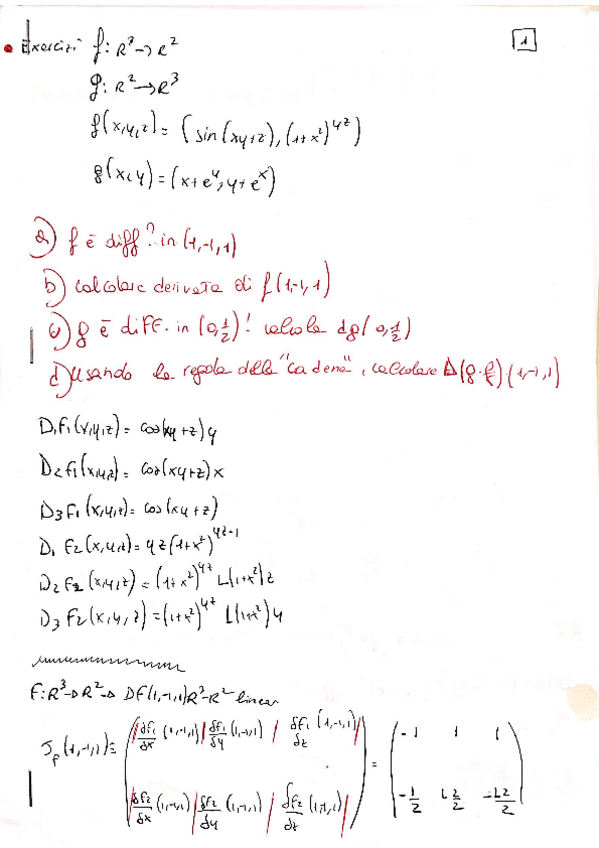 • Exercizi f: R³→R²
1
g: R²→R³
f(x,y,z)= (sin(xy+z),(1+x²)^yz)
g(x,y)=(x+e^y, y+e^x)
a) f è diff? in (1,-1,1)
b) calcolare derivata di f(1,-1,1)
c) g è diff. in (0,1/2)! calcola dg(0,1/2)
d) usando la regola della "cadena", calcolare D(g·f)(1,-1,1)
D₁f₁(x,y,z)= cos(xy+z)y
D₂f₁(x,y,z)= cos(xy+z)x
D₃f₁(x,y,z)= cos(xy+z)
D₁ f₂(x,y,z)= yz(1+x²)^yz-1
D₂ f₂(x,y,z)=(1+x²)^yz L(1+x²)z
D₃ f₂(x,y,z)=(1+x²)^yz L(1+x²)y
F: R³→R²→ DF(1,-1,1)R³-R² linear
J_f(1,-1,1)≡ ( δf₁/δx (1,-1,1) | δf₁/δy (1,-1,1) | δf₁/δz (1,-1,1) | = ( -1 1 1
δf₂/δx (1,-1,1) | δf₂/δy (1,-1,1) | δf₂/δz (1,-1,1) | ) -1/2 L2/2 -L2/2 )